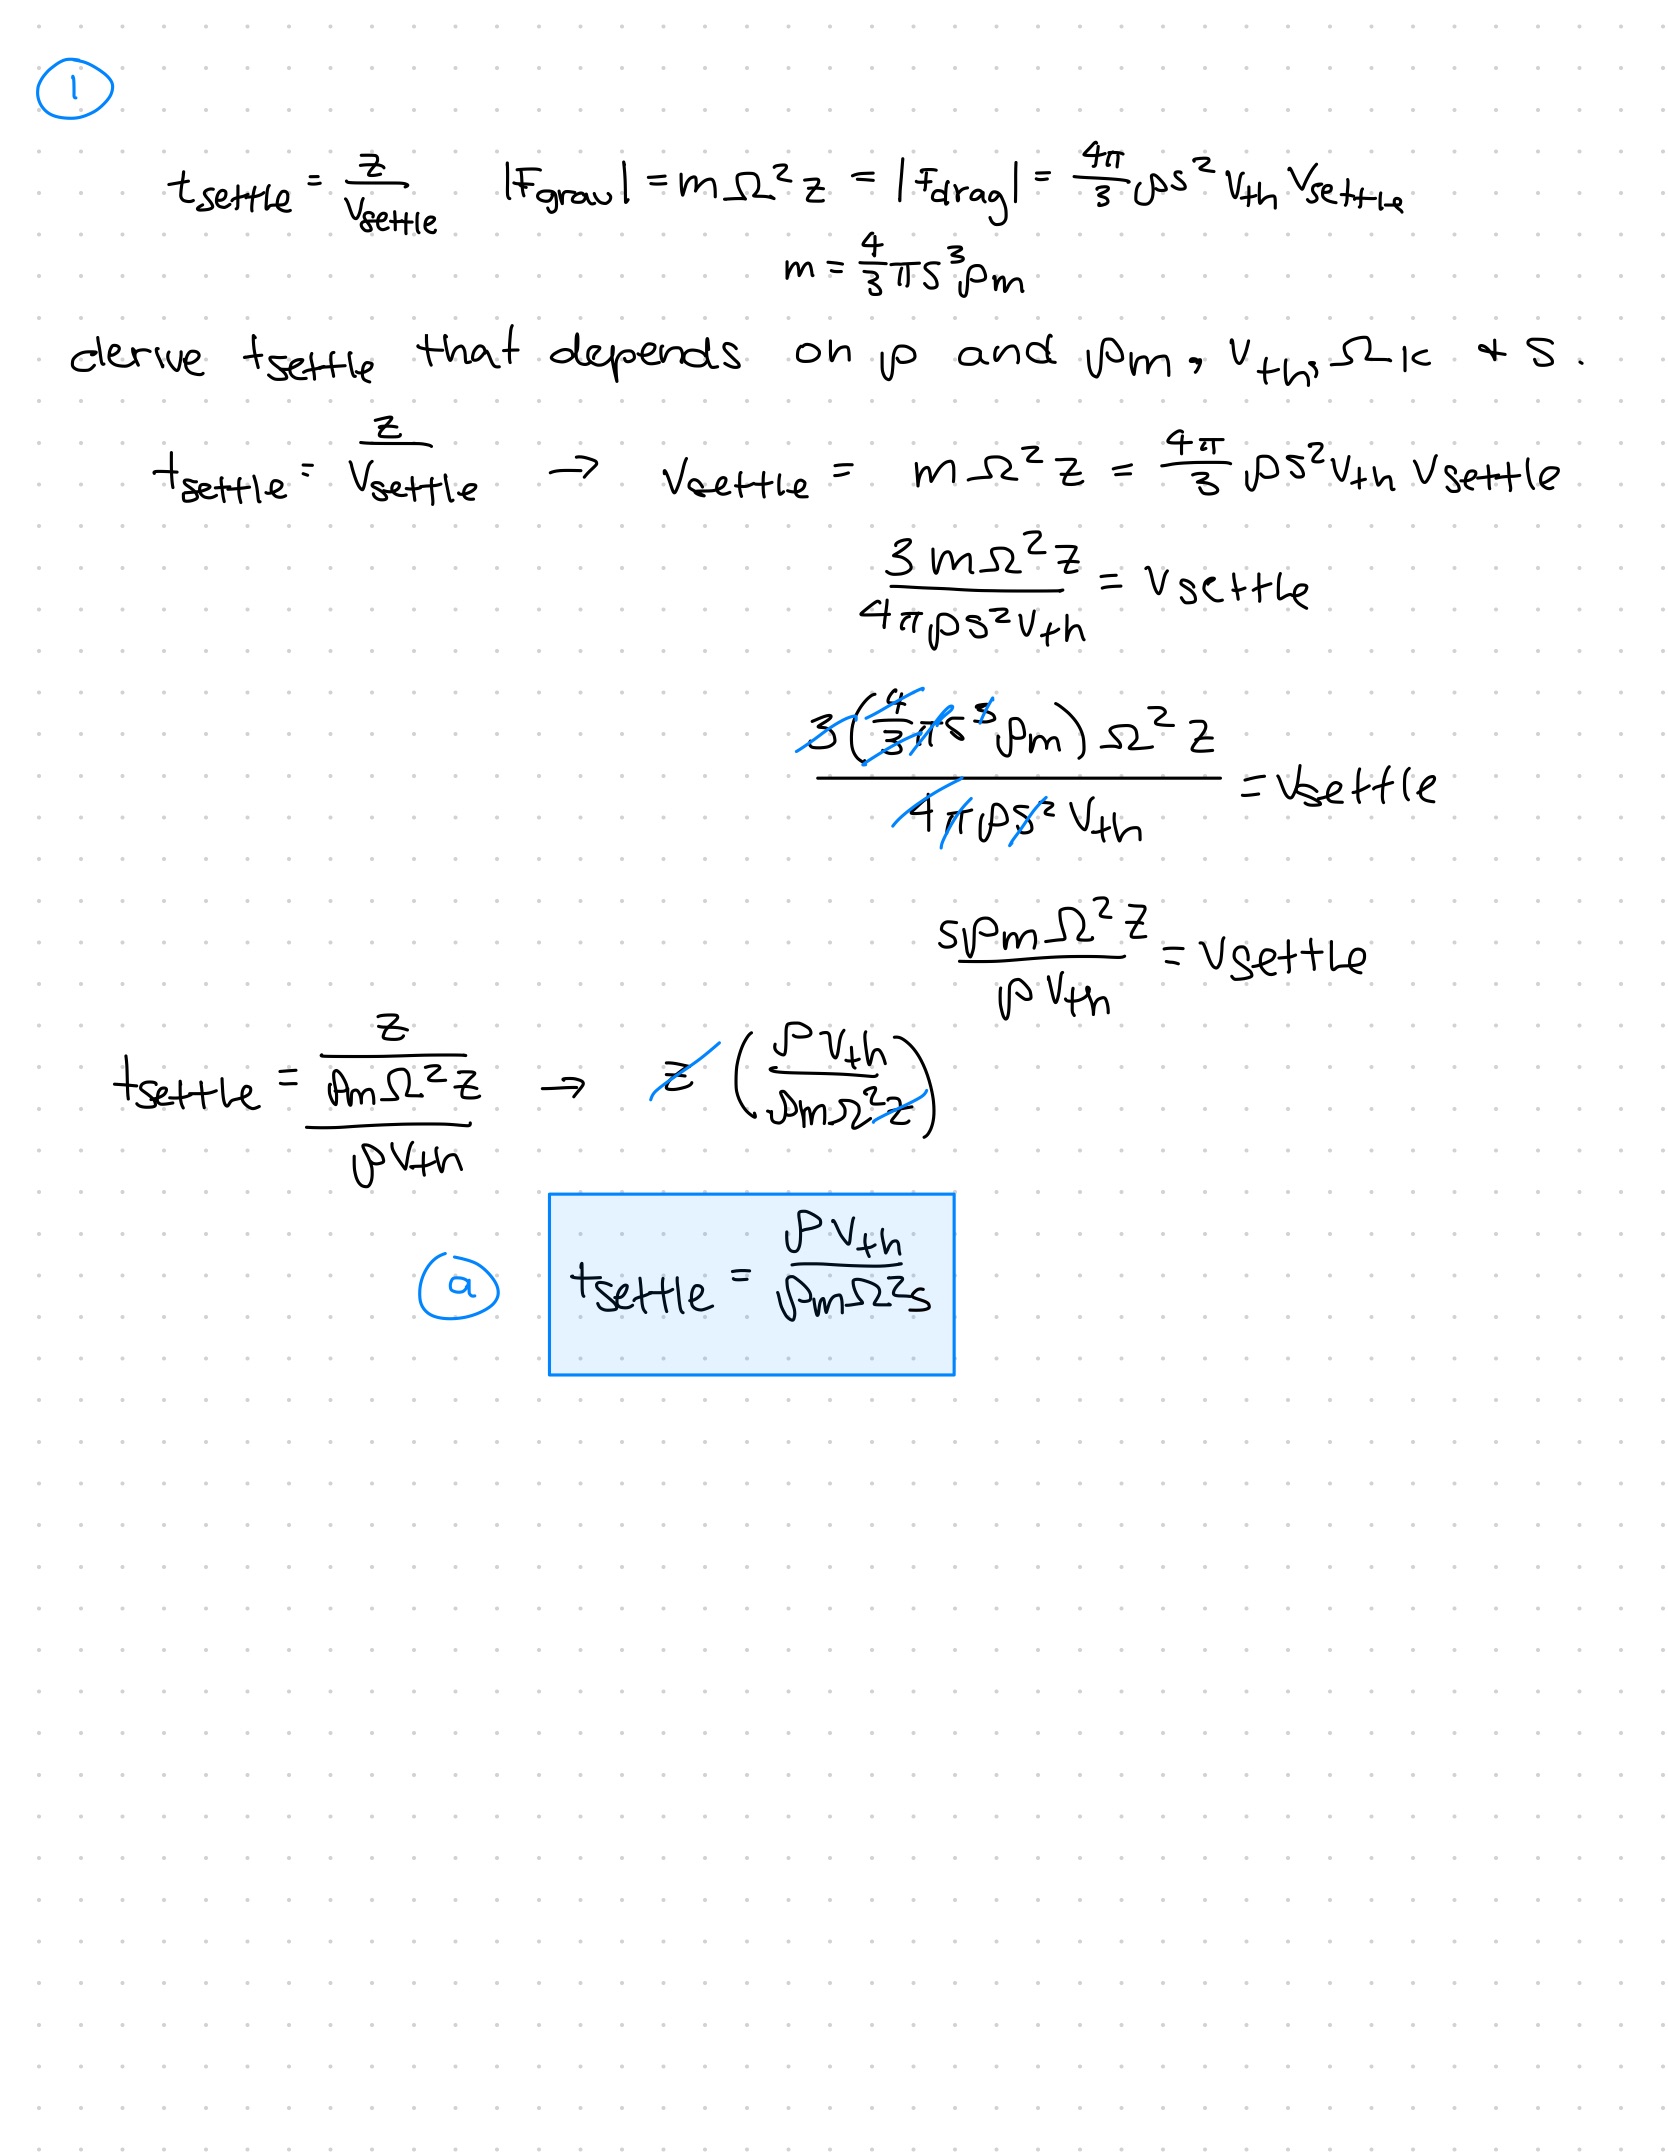 1
t_settle = z/v_settle   |F_grav| = mΩ²z = |F_drag| = 4π/3 ρs² v_th v_settle
m = 4/3 πs³ρ_m
derive t_settle that depends on ρ and ρ_m, v_th, Ω_K + s.
t_settle = z/v_settle → v_settle = mΩ²z = 4π/3 ρs² v_th v_settle
3mΩ²z / 4πρs²v_th = v_settle
3(4/3 πs³ρ_m)Ω²z / 4πρs²v_th = v_settle
sρ_mΩ²z / ρv_th = v_settle
t_settle = z / (ρ_mΩ²z / ρv_th) → z (ρv_th / ρ_mΩ²z)
a   t_settle = ρv_th / ρ_mΩ²s